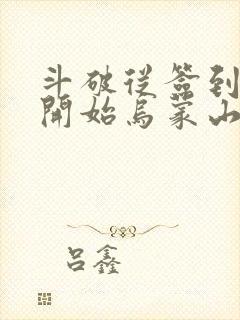 斗破從簽到
開始烏蒙山
呂鑫